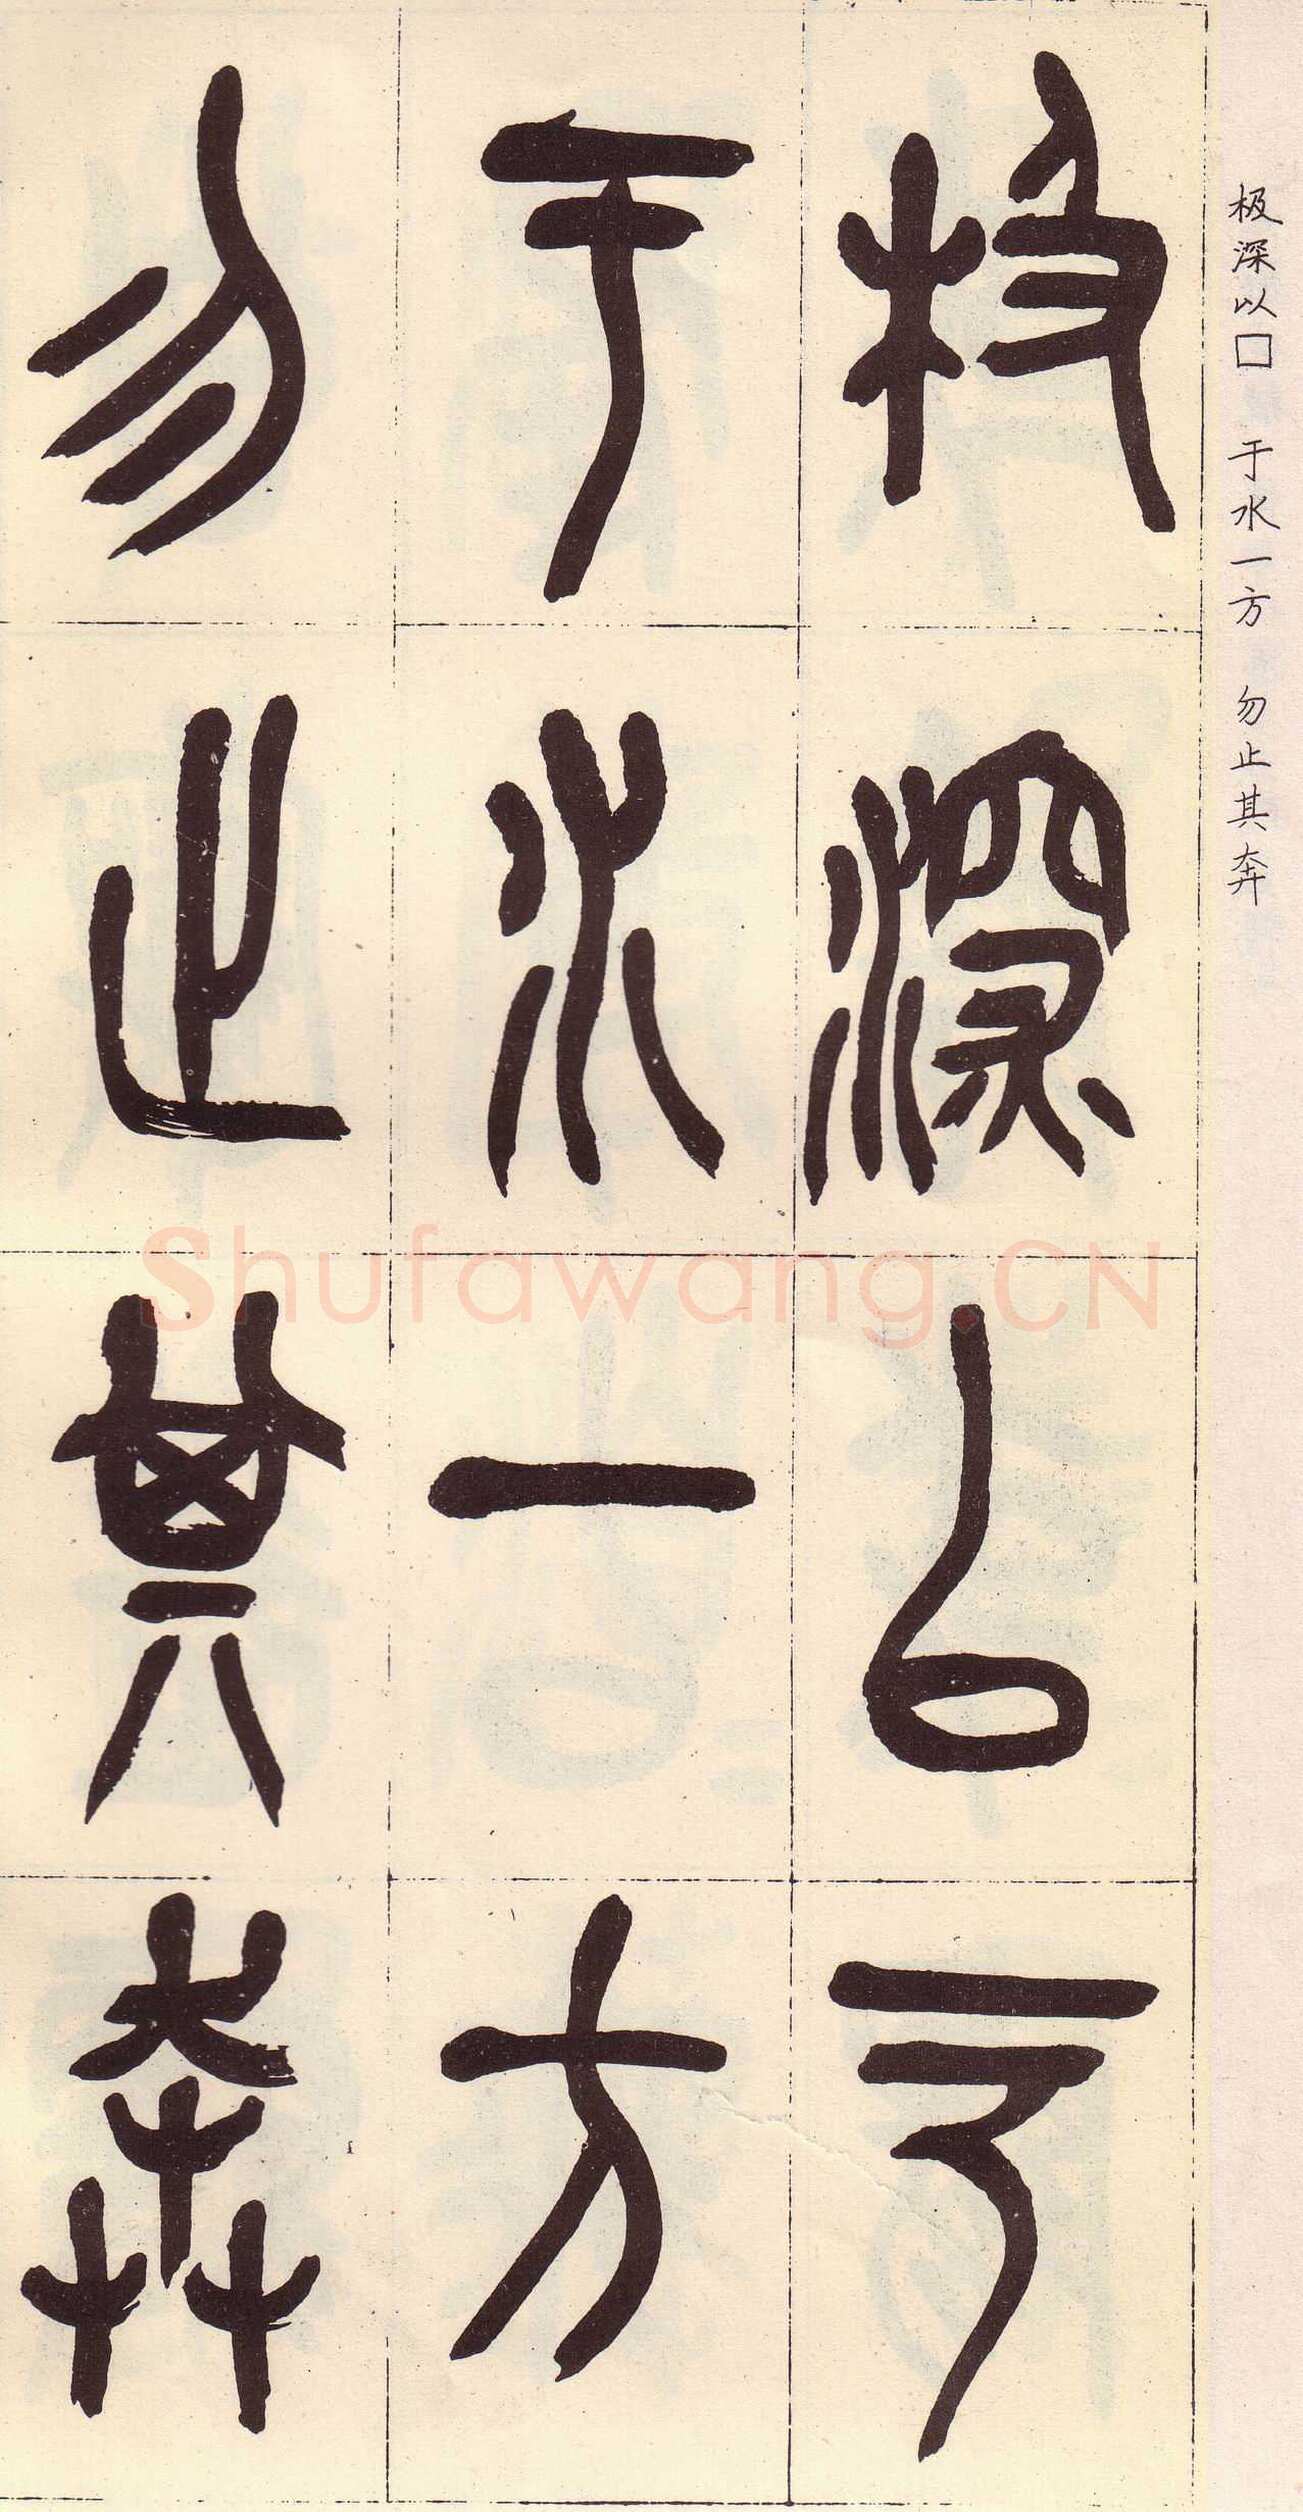 极深以□ 于水一方 勿止其奔
极深以
于水一方
勿止其奔
Shufawang.CN